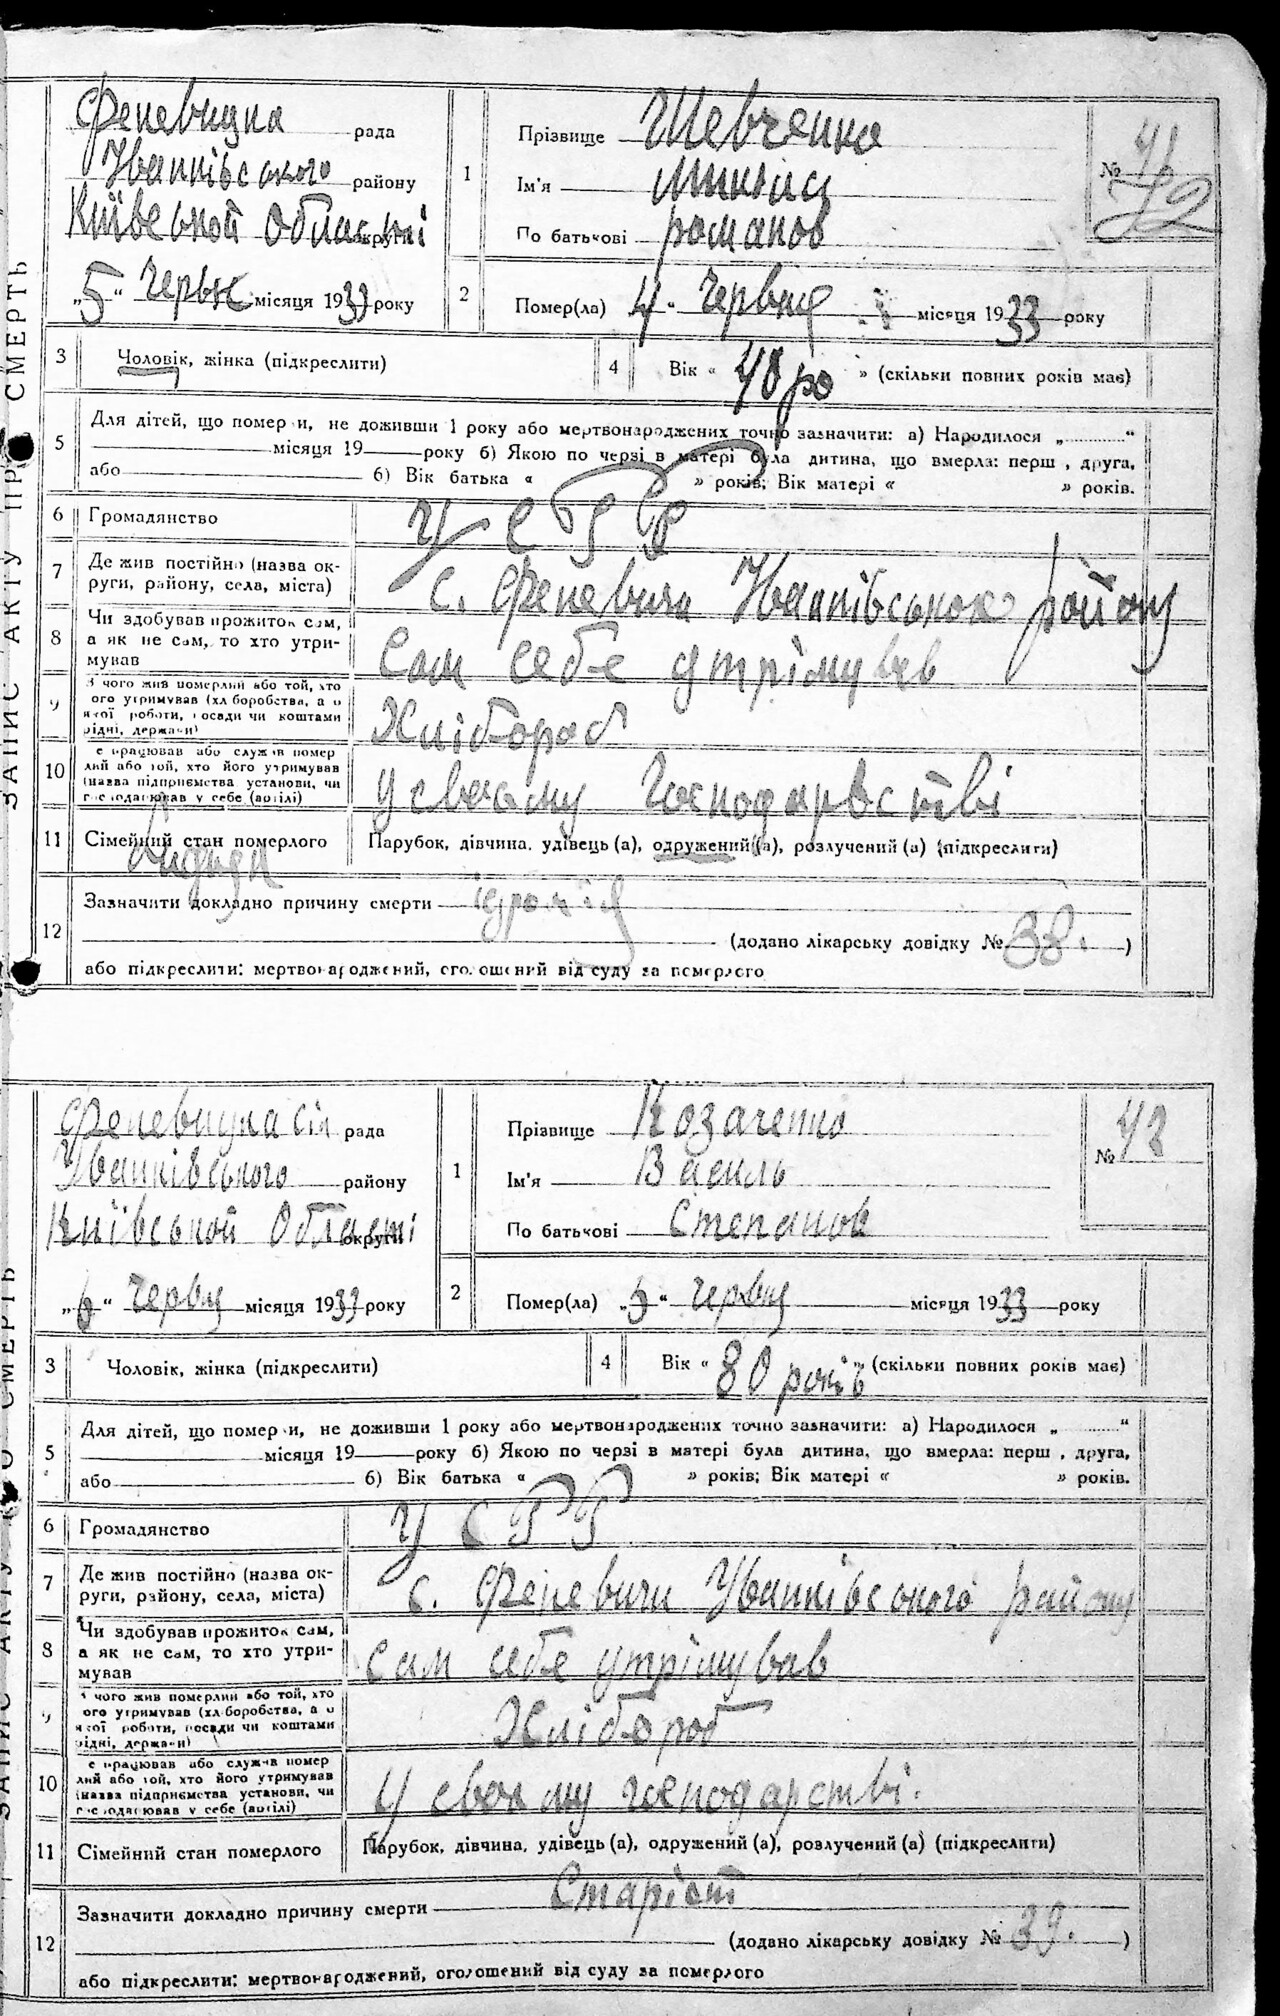 ЗАПИС АКТУ ПРО СМЕРТЬ
Феневицка рада
Іванківського району
Київської Області округи
„5“ Червня місяця 1933 року
1
Прізвище Шевченко
Ім'я
По батькові романов
№ 41
42
2
Помер(ла) 4 “ Червня місяця 1933 року
3
Чоловік, жінка (підкреслити)
4
Вік « 40 ро » (скільки повних років має)
5
Для дітей, що померли, не доживши 1 року або мертвонароджених точно зазначити: а) Народилося „ “
місяця 19 року б) Якою по черзі в матері була дитина, що вмерла: перш , друга,
або б) Вік батька « » років; Вік матері « » років.
6
Громадянство
УСРР
7
Де жив постійно (назва ок-
руги, району, села, міста)
с. Феневичи Іванківського району
8
Чи здобував прожиток сам,
а як не сам, то хто утри-
мував
Сам себе утрімував
9
З чого жив померлий або той, хто
ого утримував (хл боробства, а о
якої роботи, посади чи коштами
рідні, держави)
Хлібороб
10
е працював або служив помер
лий або той, хто його утримував
(назва підприємства установи, чи
господарював у себе (вдома)
у своєму Господарстві
11
Сімейний стан померлого
Парубок, дівчина, удівець (а), одружений (а), розлучений (а) (підкреслити)
12
Зазначити докладно причину смерти
(додано лікарську довідку № 38. )
або підкреслити: мертвонароджений, оголошений від суду за померлого
ЗАПИС АКТУ ПРО СМЕРТЬ
Феневицка сіл рада
Іванківського району
Київської Області округи
„6“ Червня місяця 1933 року
1
Прізвище Козаченко
Ім'я Василь
По батькові Степанов
№ 42
2
Помер(ла) „5“ Червня місяця 1933 року
3
Чоловік, жінка (підкреслити)
4
Вік « 80 років » (скільки повних років має)
5
Для дітей, що померли, не доживши 1 року або мертвонароджених точно зазначити: а) Народилося „ “
місяця 19 року б) Якою по черзі в матері була дитина, що вмерла: перш , друга,
або б) Вік батька « » років; Вік матері « » років.
6
Громадянство
УСРР
7
Де жив постійно (назва ок-
руги, району, села, міста)
с. Феневичи Іванківського району
8
Чи здобував прожиток сам,
а як не сам, то хто утри-
мував
Сам себе утрімував
9
З чого жив померлий або той, хто
ого утримував (хл боробства, а о
якої роботи, посади чи коштами
рідні, держави)
Хлібороб
10
е працював або служив помер
лий або той, хто його утримував
(назва підприємства установи, чи
господарював у себе (вдома)
У своєму господарстві.
11
Сімейний стан померлого
Парубок, дівчина, удівець (а), одружений (а), розлучений (а) (підкреслити)
12
Зазначити докладно причину смерти Старіст
(додано лікарську довідку № 39. )
або підкреслити: мертвонароджений, оголошений від суду за померлого